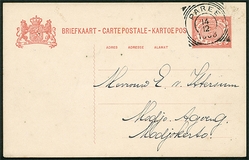 BRIEFKAART - CARTE POSTALE - KARTOE POS
ADRES ADRESSE ALAMAT
PAREE
14
12
Mevrouw E. v.
Modjo Agoeng
Modjokerto